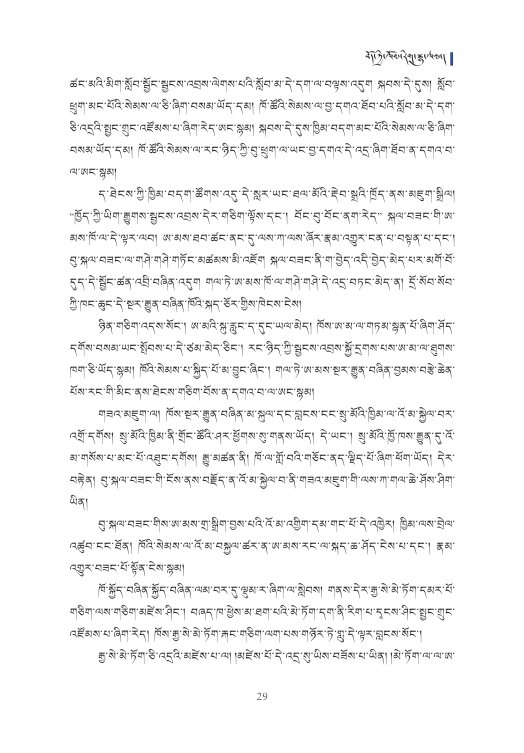 ཚང་མའི་མིག་སློབ་སྦྱོང་སྦྱངས་འབྲས་ལེགས་པའི་སློབ་མ་དེ་དག་ལ་བལྟས་འདུག སྐབས་དེ་དུས། སློབ་
ཕྲུག་མང་པོའི་སེམས་ལ་ཅི་ཞིག་བསམ་ཡོད་དམ། ཁོ་ཚོའི་སེམས་ལ་བྱ་དགའ་ཐོབ་པའི་སློབ་མ་དེ་དག་
ཅི་འདྲའི་སྤྱང་གྲུང་འཛོམས་པ་ཞིག་རེད་ཨང་སྙམ། སྐབས་དེ་དུས་ཁྱིམ་བདག་མང་པོའི་སེམས་ལ་ཅི་ཞིག་
བསམ་ཡོད་དམ། ཁོ་ཚོའི་སེམས་ལ་རང་ཉིད་ཀྱི་བུ་ཕྲུག་ལ་ཡང་བྱ་དགའ་དེ་འདྲ་ཞིག་ཐོབ་ན་དགའ་བ་
ལ་ཨང་སྙམ།
ད་ཐེངས་ཀྱི་ཁྱིམ་བདག་ཚོགས་འདུ་དེ་སླར་ཡང་ཐལ་མོའི་རྡེབ་སྒྲའི་ཁྲོད་ནས་མཇུག་སྒྲིལ།
“ཁྱོད་ཀྱི་ཡིག་རྒྱུགས་སྦྱངས་འབྲས་དེར་གཅིག་ལྟོས་དང་། བོང་བུ་བོང་ནག་རེད” སྐལ་བཟང་གི་ཨ་
མས་ཁོ་ལ་དེ་ལྟར་ལབ། ཨ་མས་ཐབ་ཚང་ནང་དུ་ལས་ཀ་ལས་ཞོར་རྣམ་འགྱུར་ངན་པ་བསྟན་པ་དང་།
བུ་སྐལ་བཟང་ལ་གཤེ་གཤེ་གཏོང་མཚམས་མི་འཇོག སྐལ་བཟང་ནི་ག་བྱེད་འདི་བྱེད་མེད་པར་མགོ་བོ་
དུད་དེ་སྦྱོང་ཚན་འབྲི་བཞིན་འདུག གལ་ཏེ་ཨ་མས་ཁོ་ལ་གཤེ་གཤེ་དེ་འདྲ་བཏང་མེད་ན། དྲོ་སོབ་སོབ་
ཀྱི་ཁང་ཆུང་དེ་སྔར་རྒྱུན་བཞིན་ཁོའི་སྐད་ཅོར་གྱིས་ཁེངས་ངེས།
ཉིན་གཅིག་འདས་སོང་། ཨ་མའི་སྐུ་རླུང་ད་དུང་ཡལ་མེད། ཁོས་ཨ་མ་ལ་གཏམ་སྙན་པོ་ཞིག་ཤོད་
དགོས་བསམ་ཡང་སྤོབས་པ་དེ་ཙམ་མེད་ཅིང་། རང་ཉིད་ཀྱི་སྦྱངས་འབྲས་སྐྱོ་དྲགས་པས་ཨ་མ་ལ་ཐུགས་
ཁག་ཅི་ཡོད་སྙམ། ཁོའི་སེམས་པ་སྐྱིད་པོ་མ་བྱུང་ཞིང་། གལ་ཏེ་ཨ་མས་སྔར་རྒྱུན་བཞིན་བྱམས་བརྩེ་ཆེན་
པོས་རང་གི་མིང་ནས་ཐེངས་གཅིག་བོས་ན་དགའ་བ་ལ་ཨང་སྙམ།
གཟའ་མཇུག་ལ། ཁོས་སྔར་རྒྱུན་བཞིན་མ་སྐུལ་དང་བླངས་ངང་སྲུ་མོའི་ཁྱིམ་ལ་འོ་མ་སྐྱེལ་བར་
འགྲོ་དགོས། སྲུ་མོའི་ཁྱིམ་ནི་གྲོང་ཚོའི་ཤར་ཕྱོགས་སུ་གནས་ཡོད། དེ་ཡང་། སྲུ་མོའི་ཁྱོ་ཁས་རྒྱུན་དུ་འོ་
མ་གསོས་པ་མང་པོ་འཐུང་དགོས། རྒྱུ་མཚན་ནི། ཁོ་ལ་གློ་བའི་གཅོང་ནད་ལྕིད་པོ་ཞིག་ཕོག་ཡོད། དེར་
བརྟེན། བུ་སྐལ་བཟང་གི་ངོས་ནས་བརྗོད་ན་འོ་མ་སྐྱེལ་བ་ནི་གཟའ་མཇུག་གི་ལས་ཀ་གལ་ཆེ་ཤོས་ཤིག་
ཡིན།
བུ་སྐལ་བཟང་གིས་ཨ་མས་གྲ་སྒྲིག་བྱས་པའི་འོ་མ་འགྱིག་དམ་གང་པོ་དེ་འཁྱེར། ཁྱིམ་ལས་བྲེལ་
འཚུབ་ངང་ཐོན། ཁོའི་སེམས་ལ་འོ་མ་བསྐྱལ་ཚར་ན་ཨ་མས་རང་ལ་སྐད་ཆ་ཤོད་ངེས་པ་དང་། རྣམ་
འགྱུར་བཟང་པོ་སྟོན་ངེས་སྙམ།
ཁོ་སྐྱོད་བཞིན་སྐྱོད་བཞིན་ལམ་བར་དུ་ལྡུམ་ར་ཞིག་ལ་སླེབས། གནས་དེར་རྒྱ་སེ་མེ་ཏོག་དམར་པོ་
གཅིག་ལས་གཅིག་མཛེས་ཤིང་། བཞད་ཁ་ཕྱེས་མ་ཐག་པའི་མེ་ཏོག་དག་ནི་རིག་པ་དྭངས་ཤིང་སྤྱང་གྲུང་
འཛོམས་པ་ཞིག་རེད། ཁོས་རྒྱ་སེ་མེ་ཏོག་རྐང་གཅིག་ལག་པས་གཉེར་ཏེ་གླུ་དེ་ལྟར་བླངས་སོང་།
རྒྱ་སེ་མེ་ཏོག་ཅི་འདྲའི་མཛེས་པ་ལ། །མཛེས་པོ་དེ་འདྲ་སུ་ཡིས་བཟོས་པ་ཡིན། །མེ་ཏོག་ལ་ལ་ཨ་
29